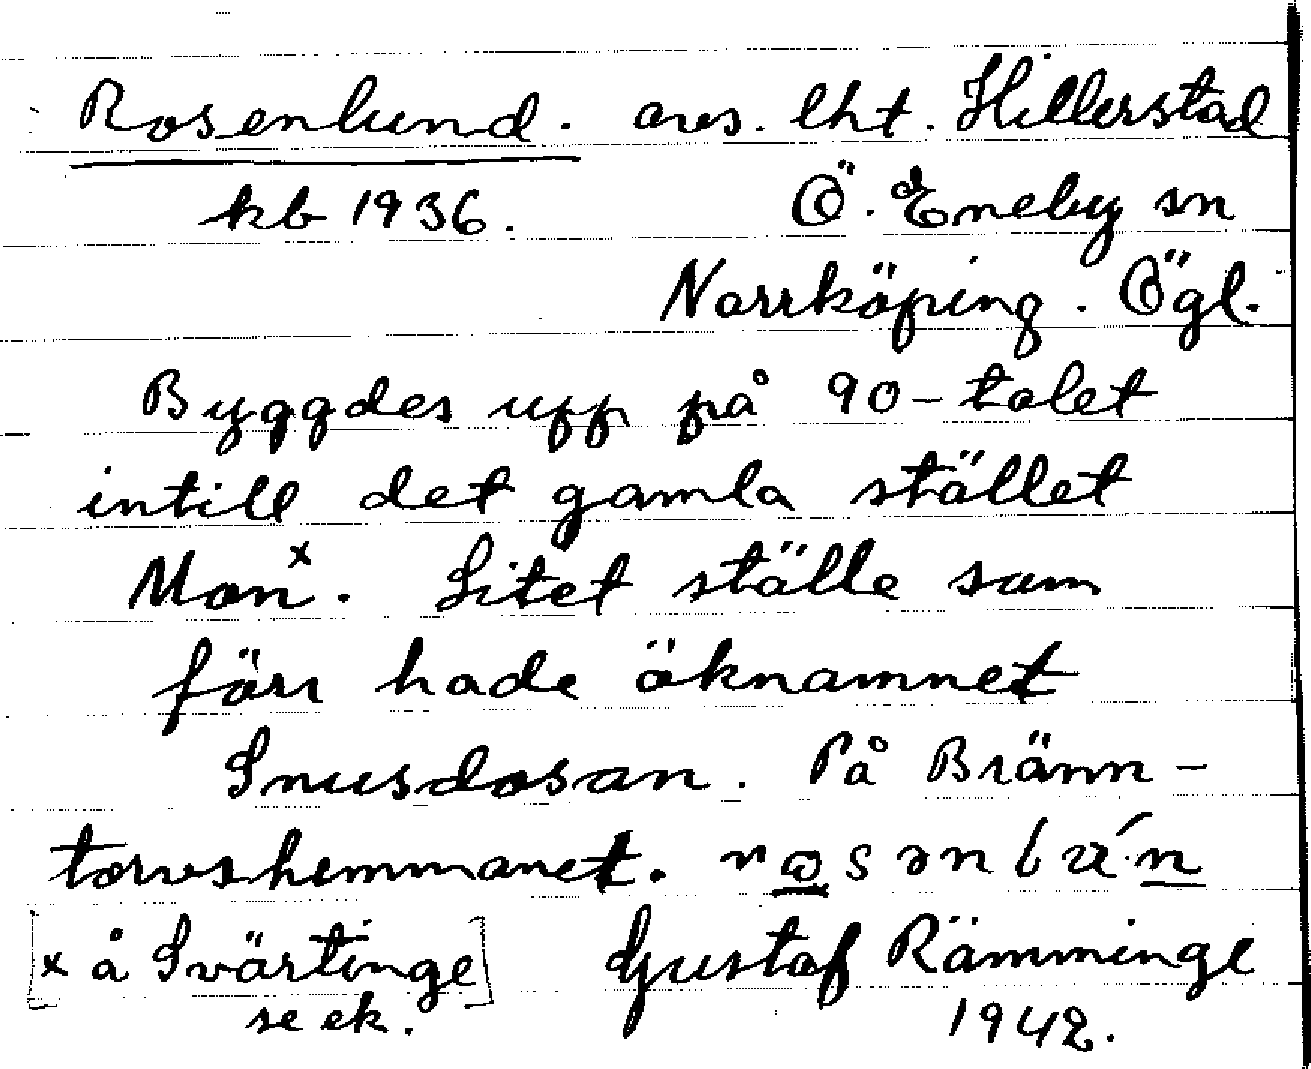 Rosenlund. avs. lht. Hillerstad
kb 1936. Ö. Eneby sn
Norrköping. Ögl.
Byggdes upp på 90-talet
intill det gamla stället
Mon x. Litet ställe som
förr hade öknamnet
Snusdosan. På Bränn-
torvshemmanet.
[x å Svärtinge] Gustaf Rämminge
se ek. 1942.